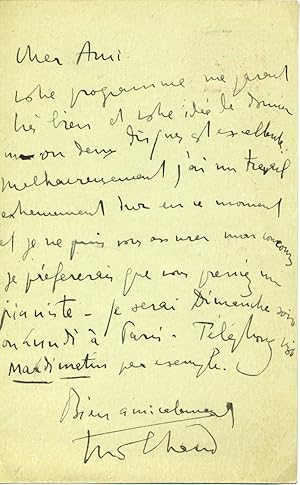 Cher Ami.
votre programme me parait
très bien et votre idée de donner
un ou deux disques est excellente.
Malheureusement j'ai un travail
extrêmement dur en ce moment
et je ne puis vous assurer mon concours
Je préfererais que vous preniez un
pianiste - Je serai Dimanche soir
ou Lundi à Paris. Téléphonez
Mardi matin par exemple.
Bien amicalement